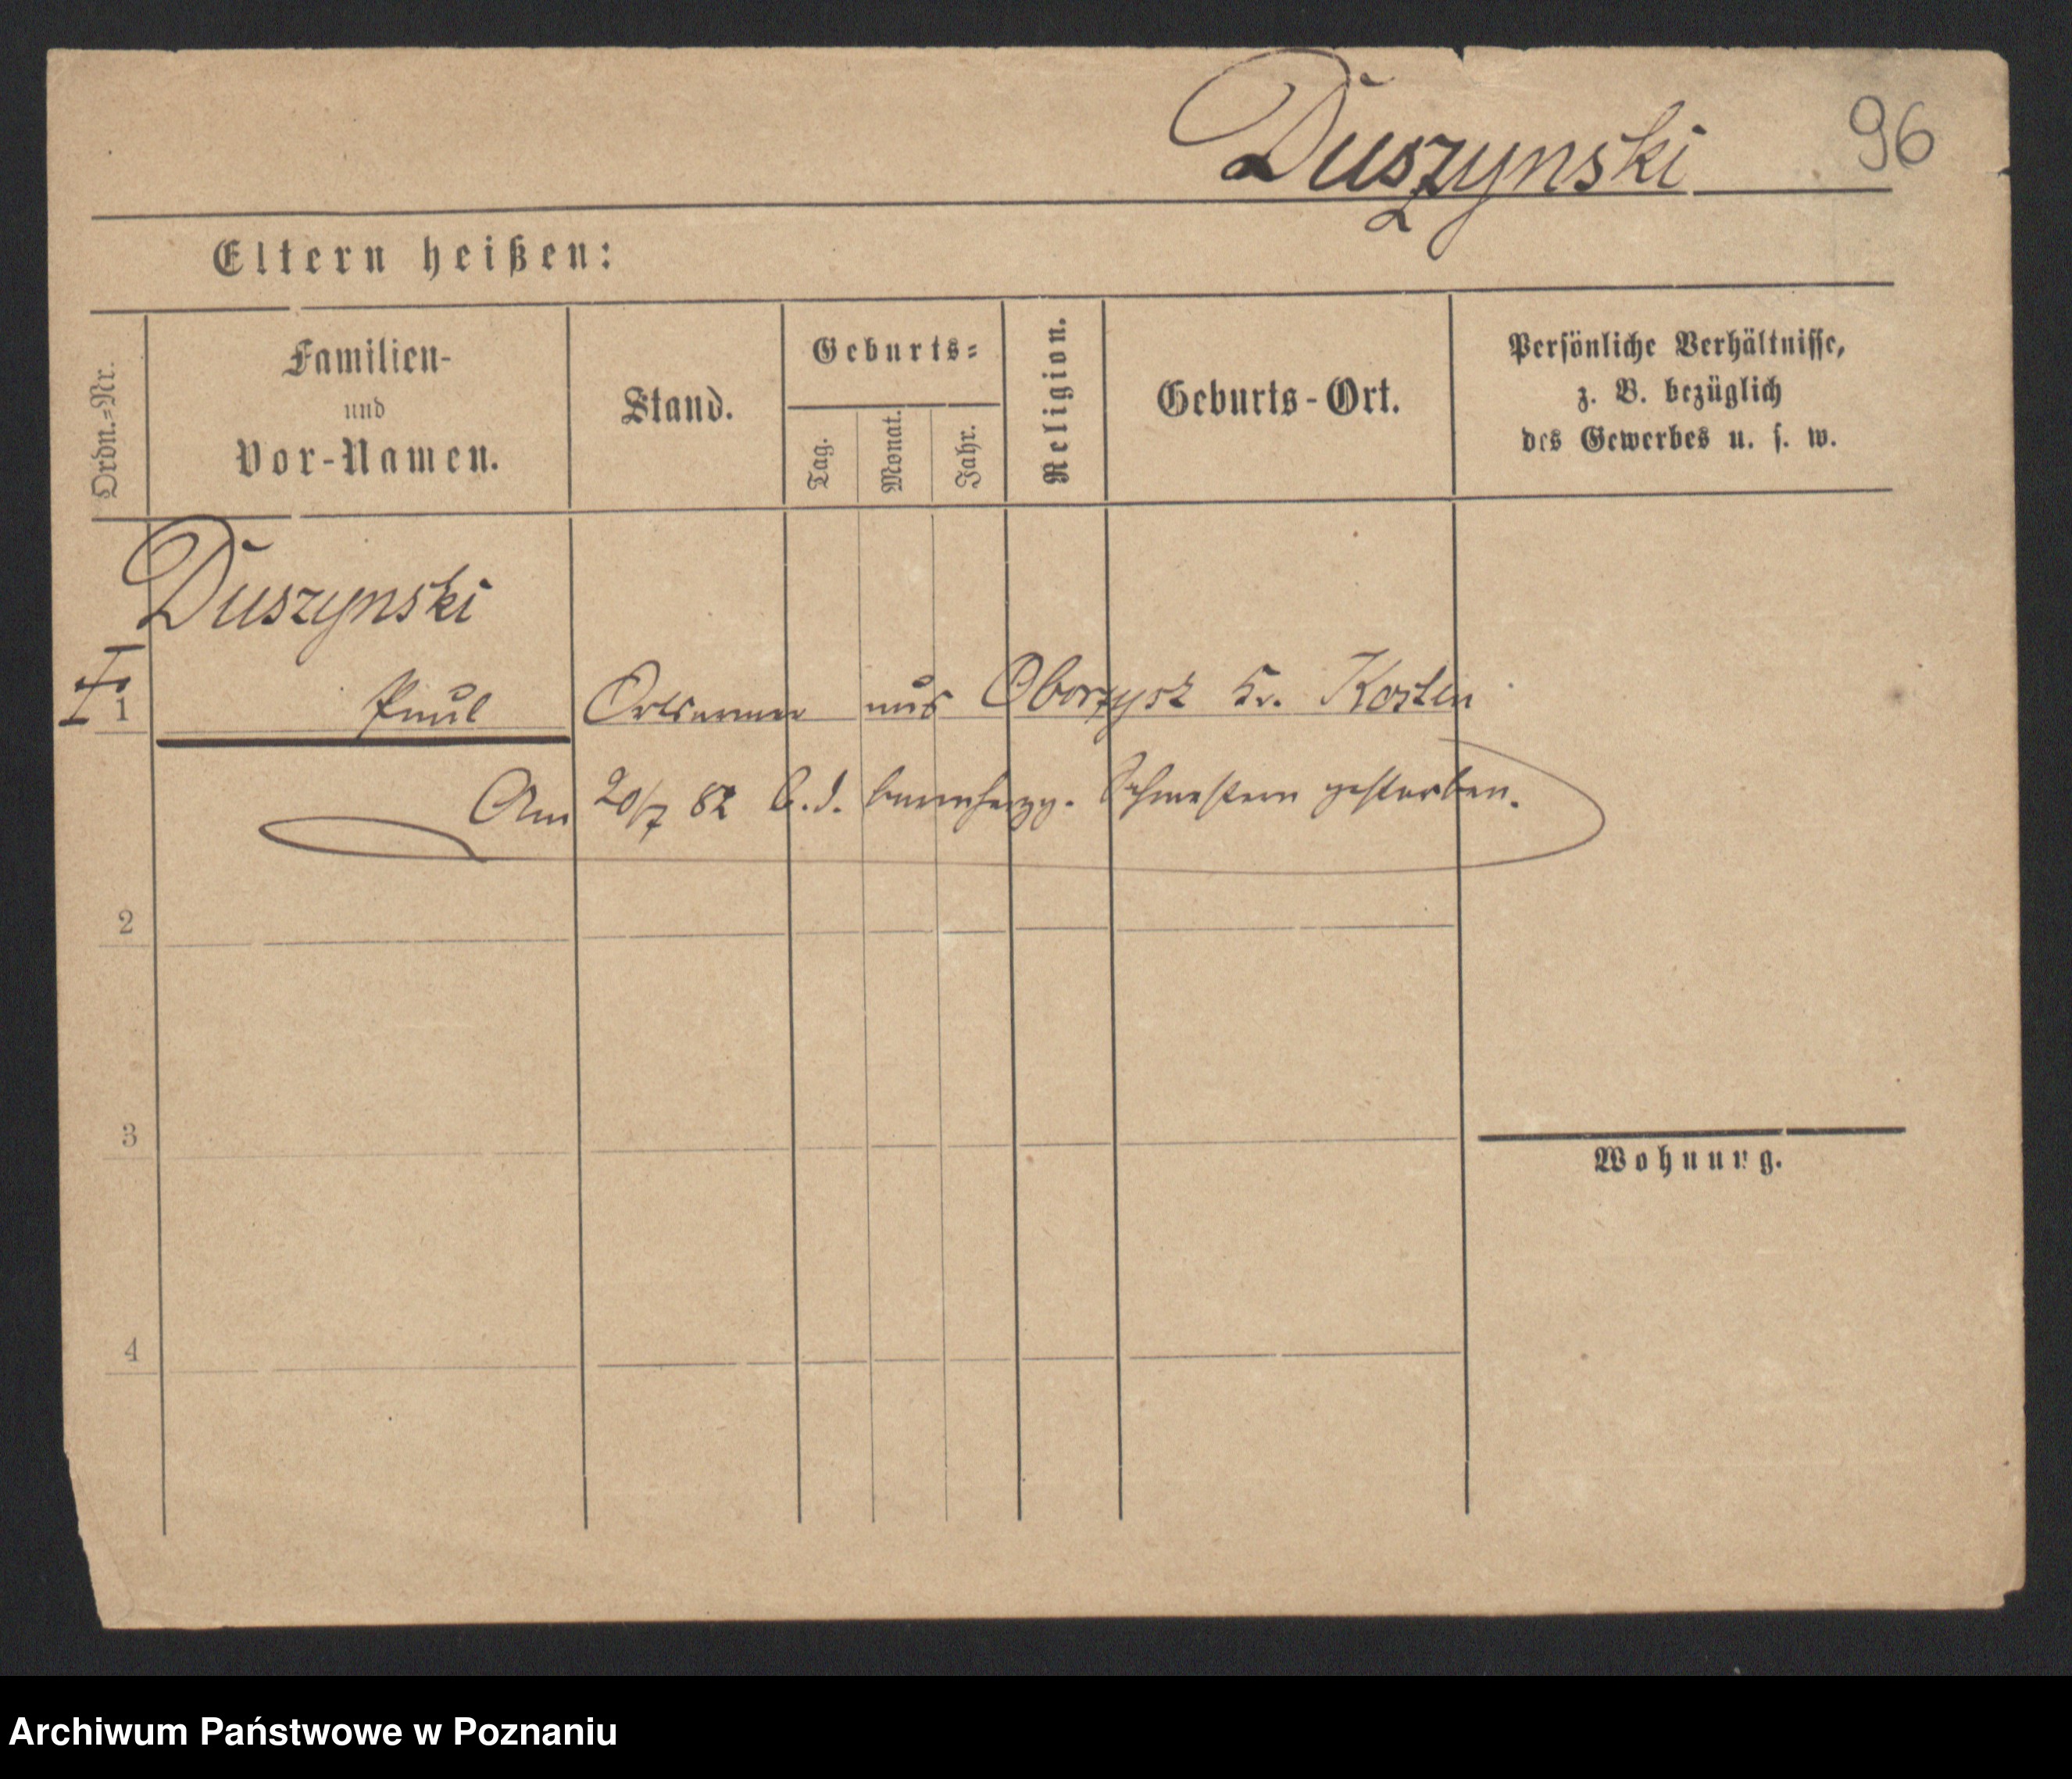 Duszynski 96
Eltern heißen:
Ordn.=Nr.
Familien-
und
Vor-Namen.
Stand.
Geburts=
Tag.
Monat.
Jahr.
Religion.
Geburts-Ort.
Persönliche Verhältnisse,
z. B. bezüglich
des Gewerbes u. s. w.
Duszynski
I
1 Paul Ortsarmer aus Oborzysk Kr. Kosten
Am 20/7 82 b. d. barmherzg. Schwestern gestorben.
2
3
Wohnung.
4
Archiwum Państwowe w Poznaniu